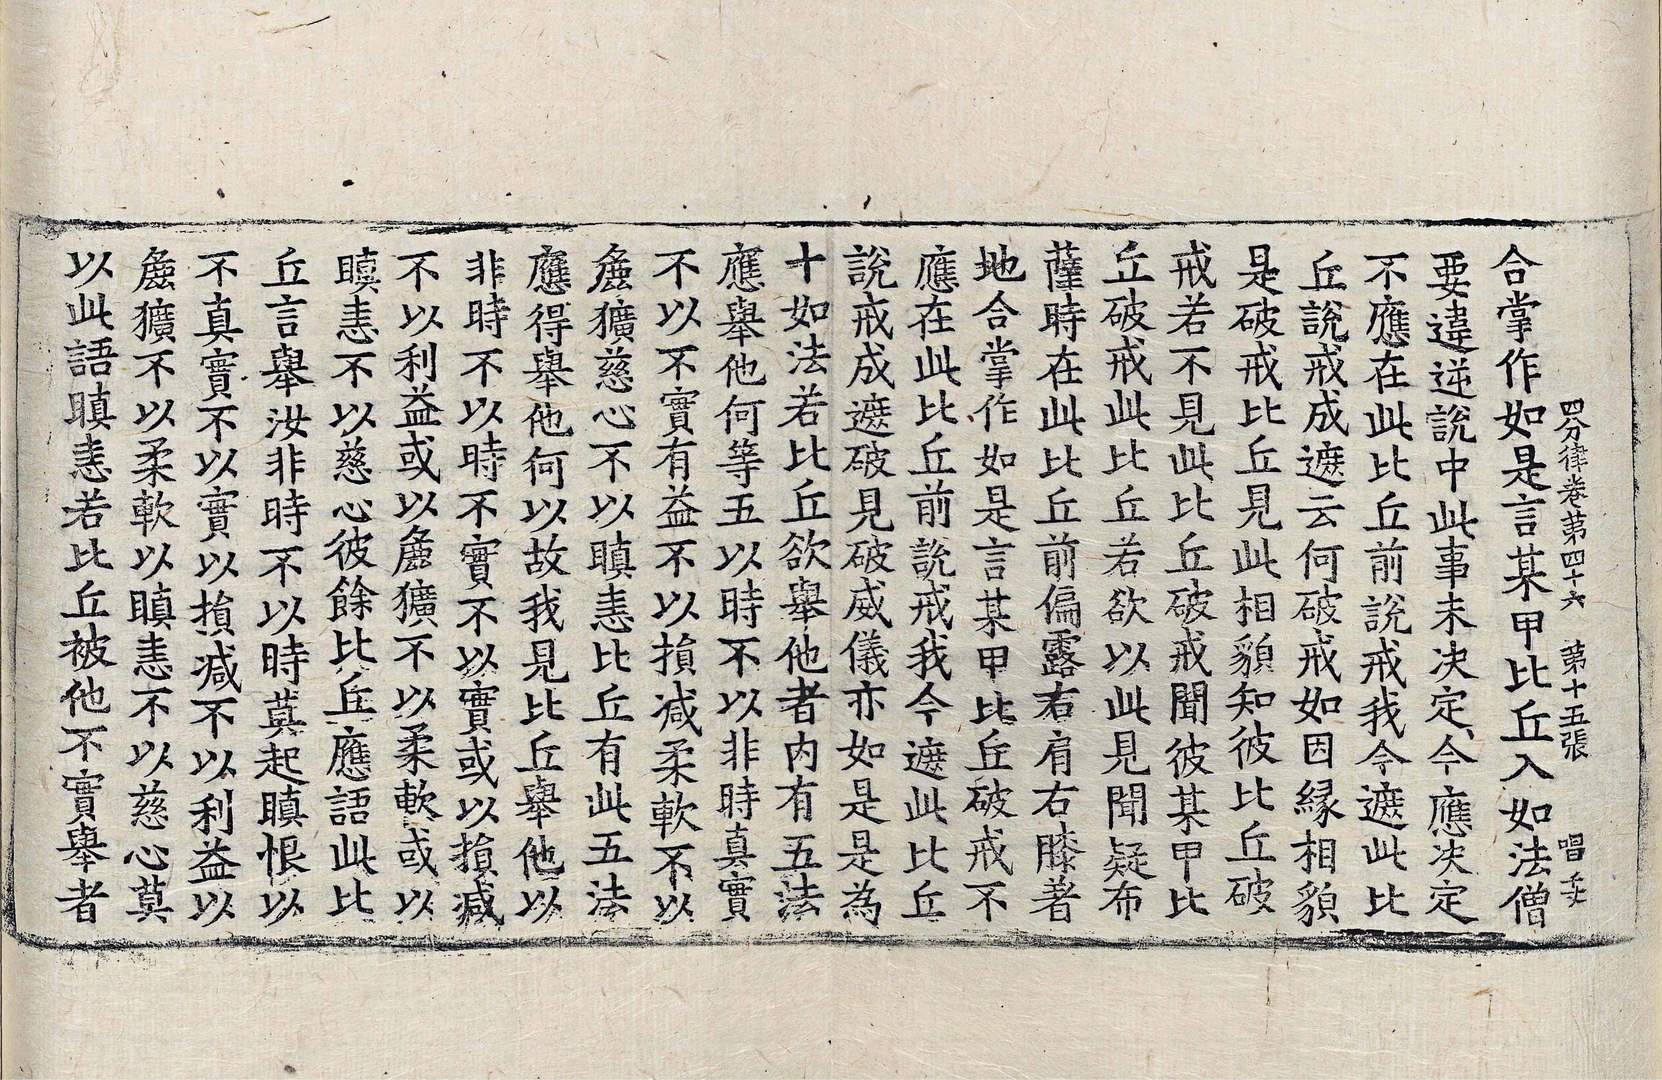 四分律卷第四十六 第十五張 唱
合掌作如是言某甲比丘入如法僧
要違逆說中此事未决定今應决定
不應在此比丘前說戒我今遮此比
丘說戒成遮云何破戒如因緣相貌
是破戒比丘見此相貌知彼比丘破
戒若不見此比丘破戒聞彼某甲比
丘破戒此比丘若欲以此見聞疑布
薩時在此比丘前偏露右肩右膝著
地合掌作如是言某甲比丘破戒不
應在此比丘前說戒我今遮此比丘
說戒成遮破見破威儀亦如是是為
十如法若比丘欲舉他者內有五法
應舉他何等五以時不以非時真實
不以不實有益不以損减柔軟不以
麁獷慈心不以瞋恚比丘有此五法
應得舉他何以故我見比丘舉他以
非時不以時不實不以實或以損减
不以利益或以麁獷不以柔軟或以
瞋恚不以慈心彼餘比丘應語此比
丘言舉汝非時不以時莫起瞋恨以
不真實不以實以損减不以利益以
麁獷不以柔軟以瞋恚不以慈心莫
以此語瞋恚若比丘被他不實舉者